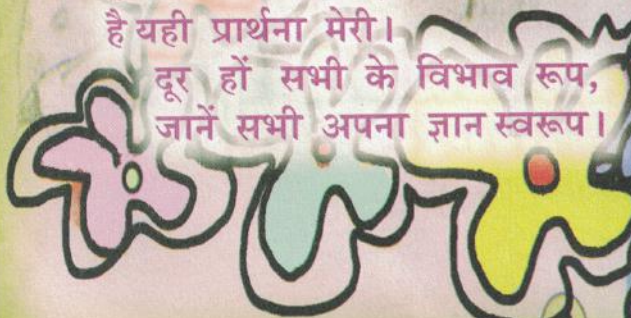 है यही प्रार्थना मेरी।
दूर हों सभी के विभाव रूप,
जानें सभी अपना ज्ञान स्वरूप।